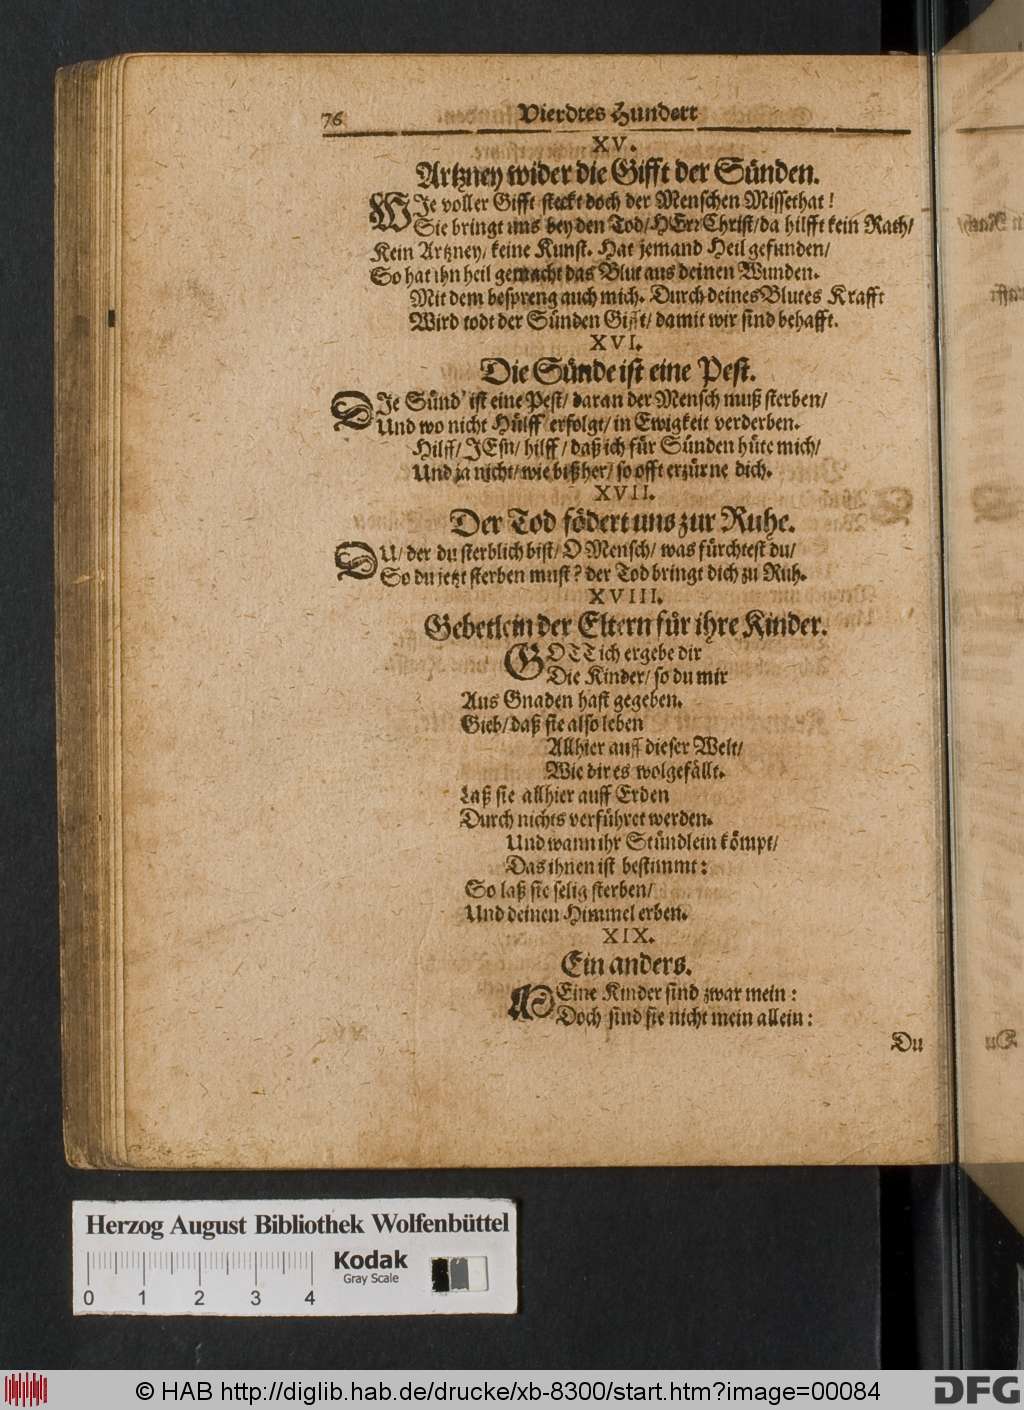 76 Vierdtes Hundert
XV.
Artzney wider die Gifft der Sünden.
WJe voller Gifft steckt doch der Menschen Missethat!
Sie bringt uns bey den Tod/ HErr Christ/ da hilfft kein Rath/
Kein Artzney/ keine Kunst. Hat jemand Heil gefunden/
So hat ihn heil gemacht das Blut aus deinen Wunden.
Mit dem bespreng auch mich. Durch deines Blutes Krafft
Wird todt der Sünden Gifft/ damit wir sind behafft.
XVI.
Die Sünde ist eine Pest.
DJe Sünd' ist eine Pest/ daran der Mensch muß sterben/
Und wo nicht Hülff' erfolgt/ in Ewigkeit verderben.
Hilff/ JEsu/ hilff/ daß ich für Sünden hüte mich/
Und ja nicht/ wie bißher/ so offt erzürne dich.
XVII.
Der Tod födert uns zur Ruhe.
DU/ der du sterblich bist/ O Mensch/ was fürchtest du/
So du jetzt sterben must? der Tod bringt dich zu Ruh.
XVIII.
Gebetlein der Eltern für ihre Kinder.
GOTT ich ergebe dir
Die Kinder/ so du mir
Aus Gnaden hast gegeben.
Gieb/ daß sie also leben
Allhier auff dieser Welt/
Wie dir es wolgefällt.
Laß sie allhier auff Erden
Durch nichts verführet werden.
Und wann ihr Stündlein kömpt/
Das ihnen ist bestimmt:
So laß sie selig sterben/
Und deinen Himmel erben.
XIX.
Ein anders.
MEine Kinder sind zwar mein:
Doch sind sie nicht mein allein:
Du
Herzog August Bibliothek Wolfenbüttel
Kodak
Gray Scale
0 1 2 3 4
© HAB http://diglib.hab.de/drucke/xb-8300/start.htm?image=00084
DFG